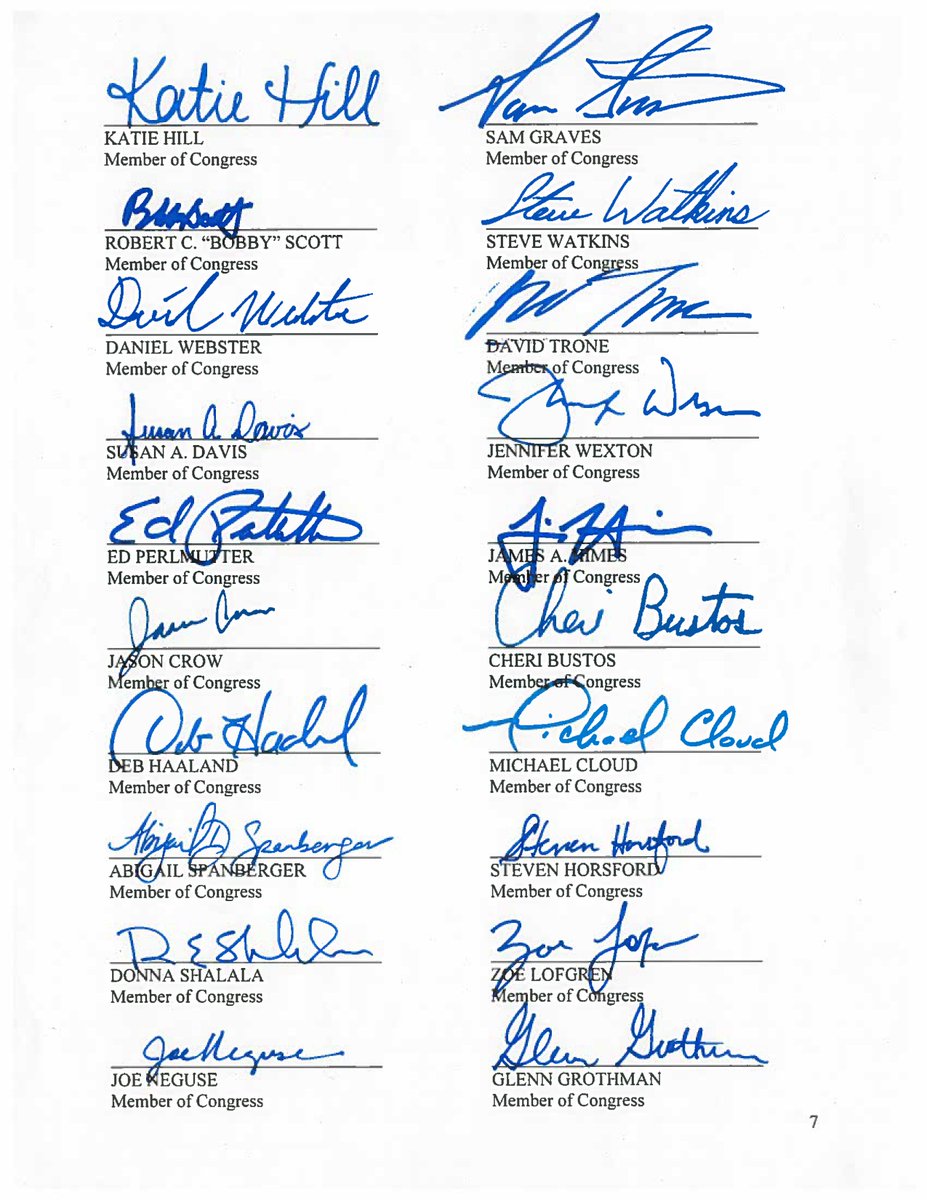 Katie Hill
KATIE HILL
Member of Congress
Sam Graves
SAM GRAVES
Member of Congress
Bobby Scott
ROBERT C. “BOBBY” SCOTT
Member of Congress
Steve Watkins
STEVE WATKINS
Member of Congress
Daniel Webster
DANIEL WEBSTER
Member of Congress
DAVID TRONE
Member of Congress
Susan A. Davis
SUSAN A. DAVIS
Member of Congress
JENNIFER WEXTON
Member of Congress
Ed Perlmutter
ED PERLMUTTER
Member of Congress
Jim Himes
JAMES A. HIMES
Member of Congress
Jason Crow
JASON CROW
Member of Congress
Cheri Bustos
CHERI BUSTOS
Member of Congress
Deb Haaland
DEB HAALAND
Member of Congress
Michael Cloud
MICHAEL CLOUD
Member of Congress
Abigail D Spanberger
ABIGAIL SPANBERGER
Member of Congress
Steven Horsford
STEVEN HORSFORD
Member of Congress
D E Shalala
DONNA SHALALA
Member of Congress
Zoe Lofgren
ZOE LOFGREN
Member of Congress
Joe Neguse
JOE NEGUSE
Member of Congress
Glenn Grothman
GLENN GROTHMAN
Member of Congress
7